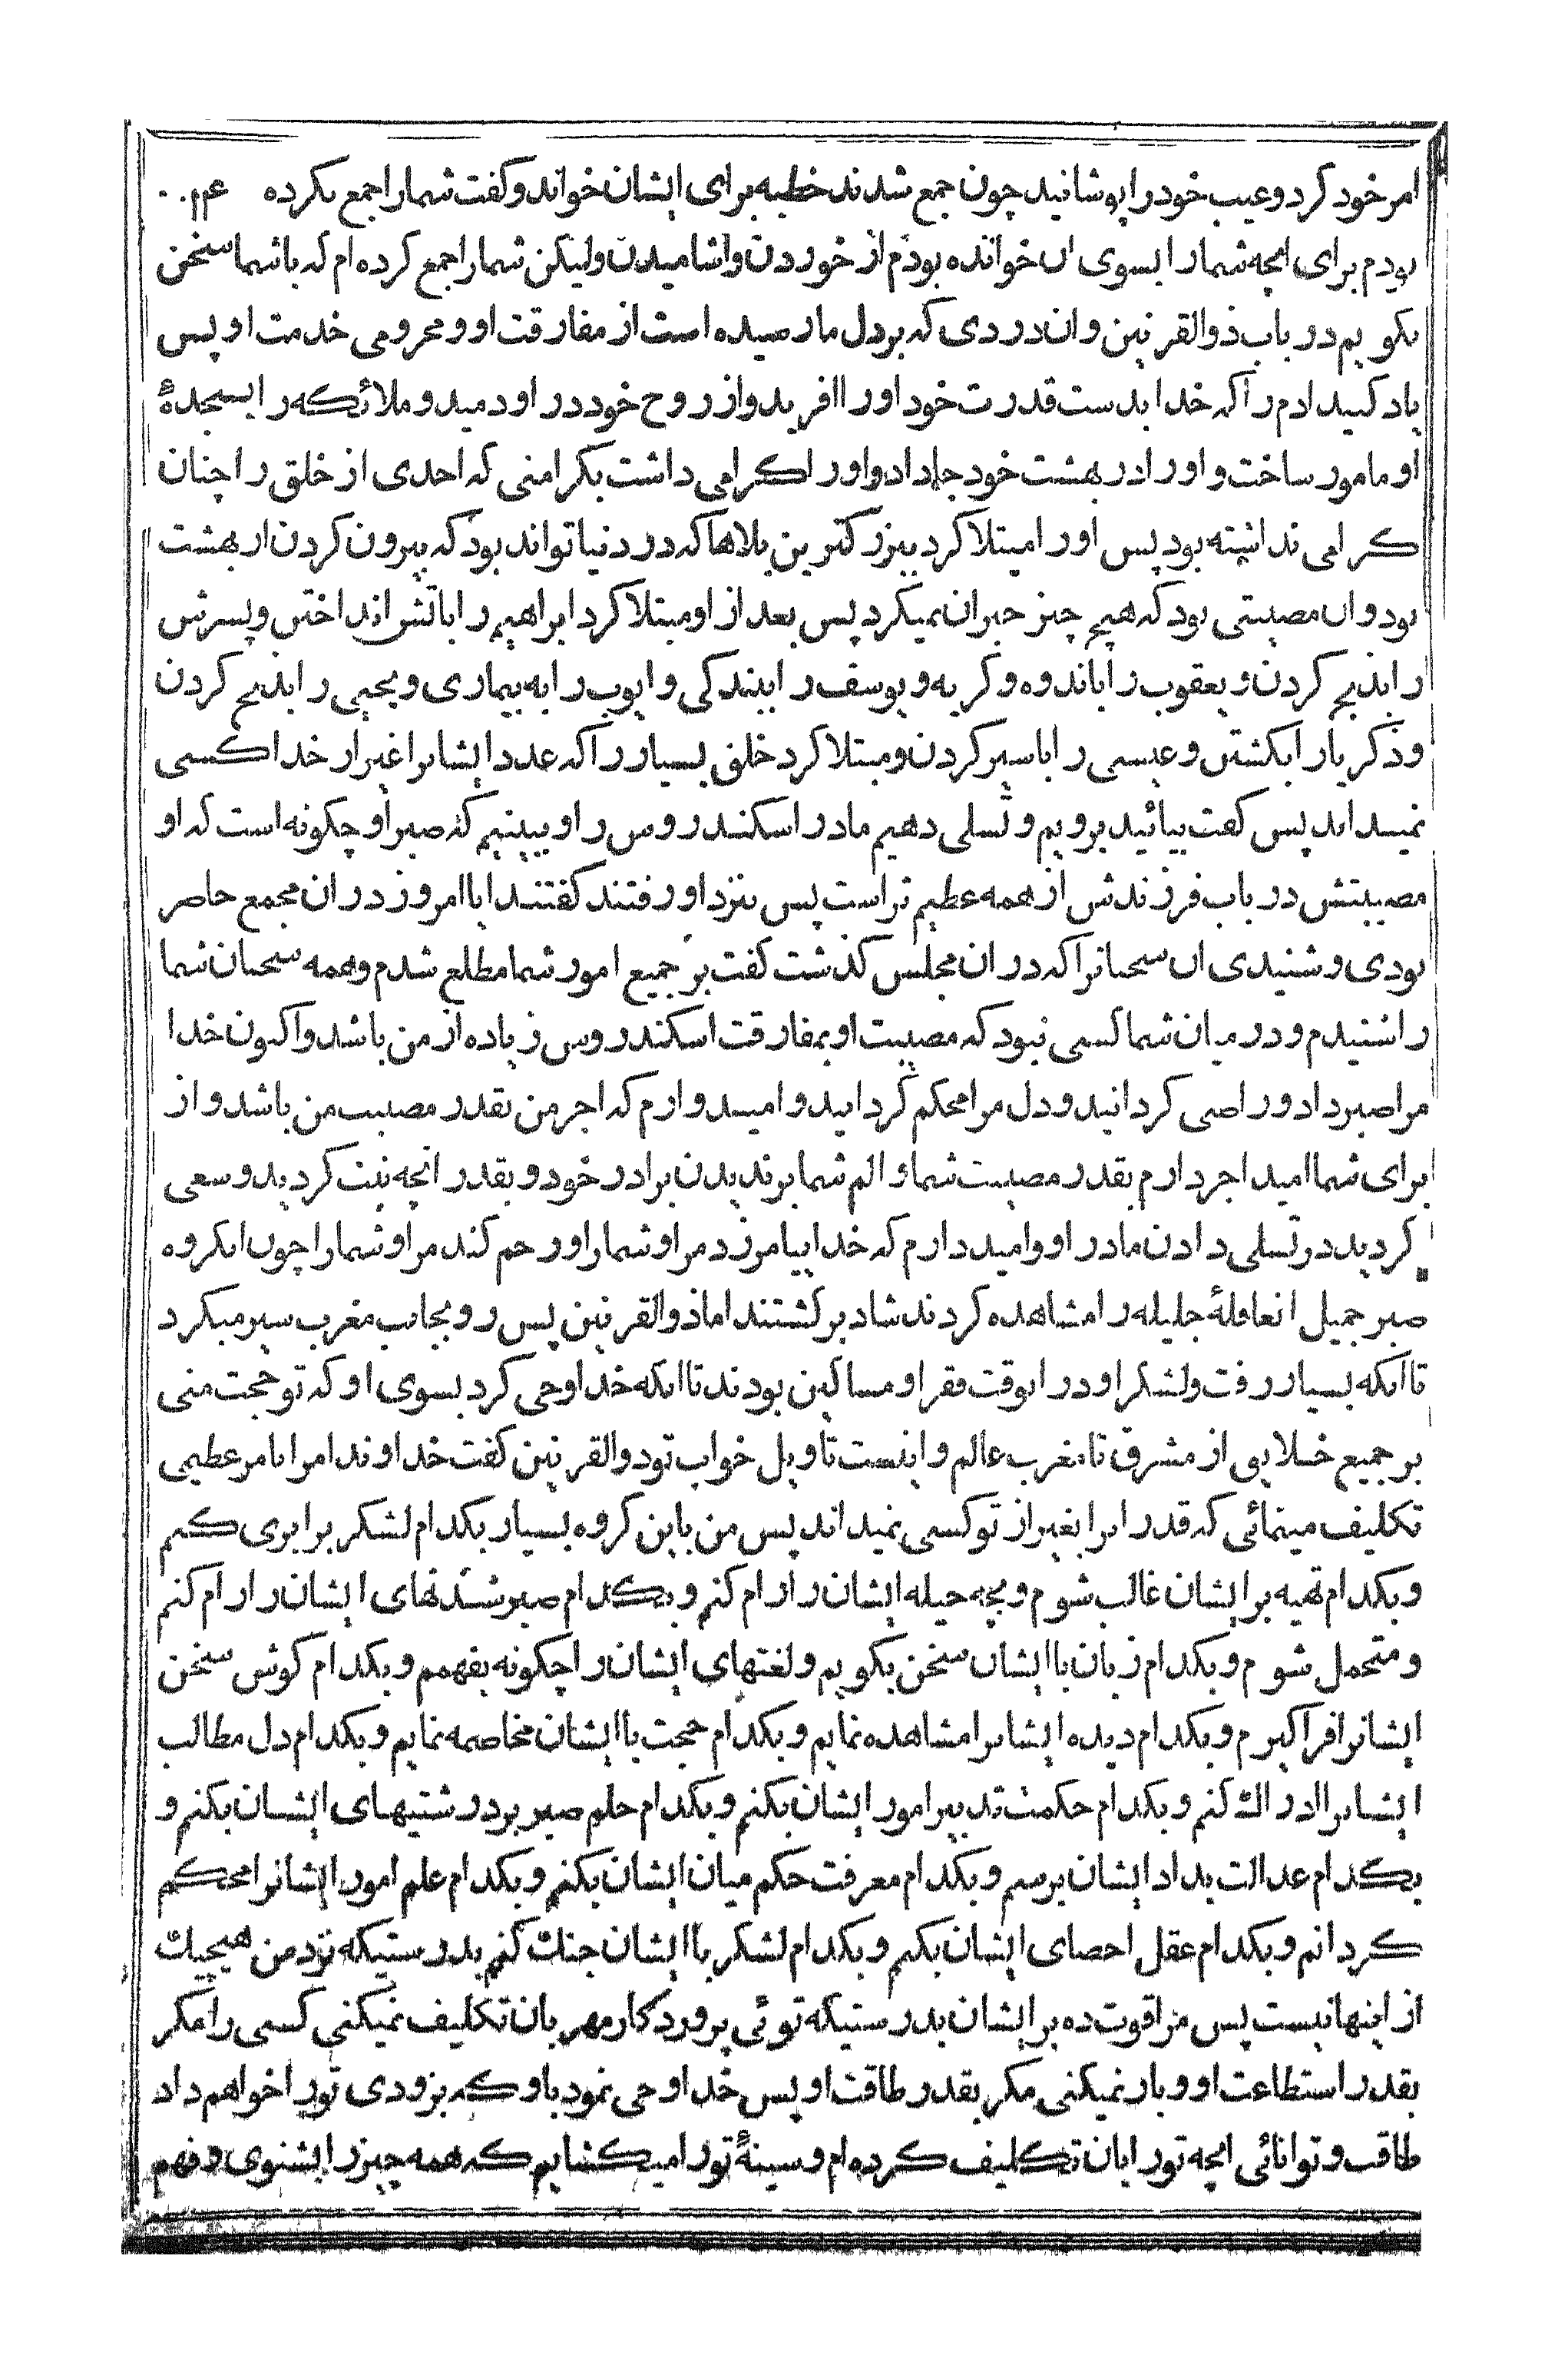 امر خود کرد و عیب خود را پوشانید چون جمع شدند خطبه برای ایشان خواند و کفت شما را جمع نکرده
بودم برای انچه شما را بسوی ان خوانده بودم از خوردن و اشامیدن ولیکن شما را جمع کرده ام که با شما سخن
بکویم در باب ذوالقرنین و ان دردی که بر دل ما رسیده است از مفارقت او و محرومی خدمت او پس
یاد کنید ادم را که خدا بدست قدرت خود او را افرید و از روح خود در او دمید و ملائکه را بسجدهٔ
او مامور ساخت و او را در بهشت خود جا داد و او را کرامی داشت بکرامتی که احدی از خلق را چنان
کرامی ندانسته بود پس او را مبتلا کرد ببزرکترین بلاها که در دنیا تواند بود که بیرون کردن از بهشت
بود و ان مصیبتی بود که هیچ چیز جبران نمیکرد پس بعد از او مبتلا کرد ابراهیم را باتش انداختن و پسرش
را بذبح کردن و یعقوب را باندوه و کریه و یوسف را ببندکی و ایوب را به بیماری و یحیی را بذبح کردن
و ذکریا را بکشتن و عیسی را باسیر کردن و مبتلا کرد خلق بسیار را که عدد ایشانرا غیر از خدا کسی
نمیداند پس کفت بیائید برویم و تسلی دهیم مادر اسکندروس را و ببینیم که صبر او چکونه است که او
مصیبتش در باب فرزندش از همه عظیم تر است پس بنزد او رفتند کفتند ایا امروز در ان مجمع حاضر
بودی و شنیدی ان سخنانرا که در ان مجلس کذشت کفت بر جمیع امور شما مطلع شدم و همه سخنان شما
را شنیدم و در میان شما کسی نبود که مصیبت او بمفارقت اسکندروس زیاده از من باشد و اکنون خدا
مرا صبر داد و راضی کردانید و دل مرا محکم کردانید و امیدوارم که اجر من بقدر مصیبت من باشد و از
برای شما امید اجر دارم بقدر مصیبت شما و الم شما بر ندیدن برادر خود و بقدر انچه نیت کردید و سعی
کردید در تسلی دادن مادر او و امید دارم که خدا بیامرزد مرا و شما را و رحم کند مرا و شما را چون انکروه
صبر جمیل انعاقلهٔ جلیله را مشاهده کردند شاد برکشتند اما ذوالقرنین پس رو بجانب مغرب سیر میکرد
تا انکه بسیار رفت و لشکر او در انوقت فقرا و مساکین بودند تا انکه خدا وحی کرد بسوی او که تو حجت منی
بر جمیع خلایق از مشرق تا مغرب عالم و اینست تاویل خواب تو ذوالقرنین کفت خداوندا مرا بامر عظیمی
تکلیف مینمائی که قدر انرا بغیر از تو کسی نمیداند پس من باین کروه بسیار بکدام لشکر برابری کنم
و بکدام تهیه بر ایشان غالب شوم و بچه حیله ایشان را رام کنم و بکدام صبر شدتهای ایشان را رام کنم
و متحمل شوم و بکدام زبان با ایشان سخن بکویم و لغتهای ایشان را چکونه بفهمم و بکدام کوش سخن
ایشانرا فرا کیرم و بکدام دیده ایشانرا مشاهده نمایم و بکدام حجت با ایشان مخاصمه نمایم و بکدام دل مطالب
ایشانرا ادراک کنم و بکدام حکمت تدبیر امور ایشان بکنم و بکدام حلم صبر بر درشتیهای ایشان بکنم و
بکدام عدالت بداد ایشان برسم و بکدام معرفت حکم میان ایشان بکنم و بکدام علم امور ایشانرا محکم
کردانم و بکدام عقل احصای ایشان بکنم و بکدام لشکر با ایشان جنک کنم بدرستیکه نزد من هیچیک
از اینها نیست پس مرا قوت ده بر ایشان بدرستیکه توئی پروردکار مهربان تکلیف نمیکنی کسی را مکر
بقدر استطاعت او و بار نمیکنی مکر بقدر طاقت او پس خدا وحی نمود باو که بزودی تو را خواهم داد
طاقت و توانائی انچه تو را بان تکلیف کرده ام و سینهٔ تو را میکشایم که همه چیز را بشنوی و فهم